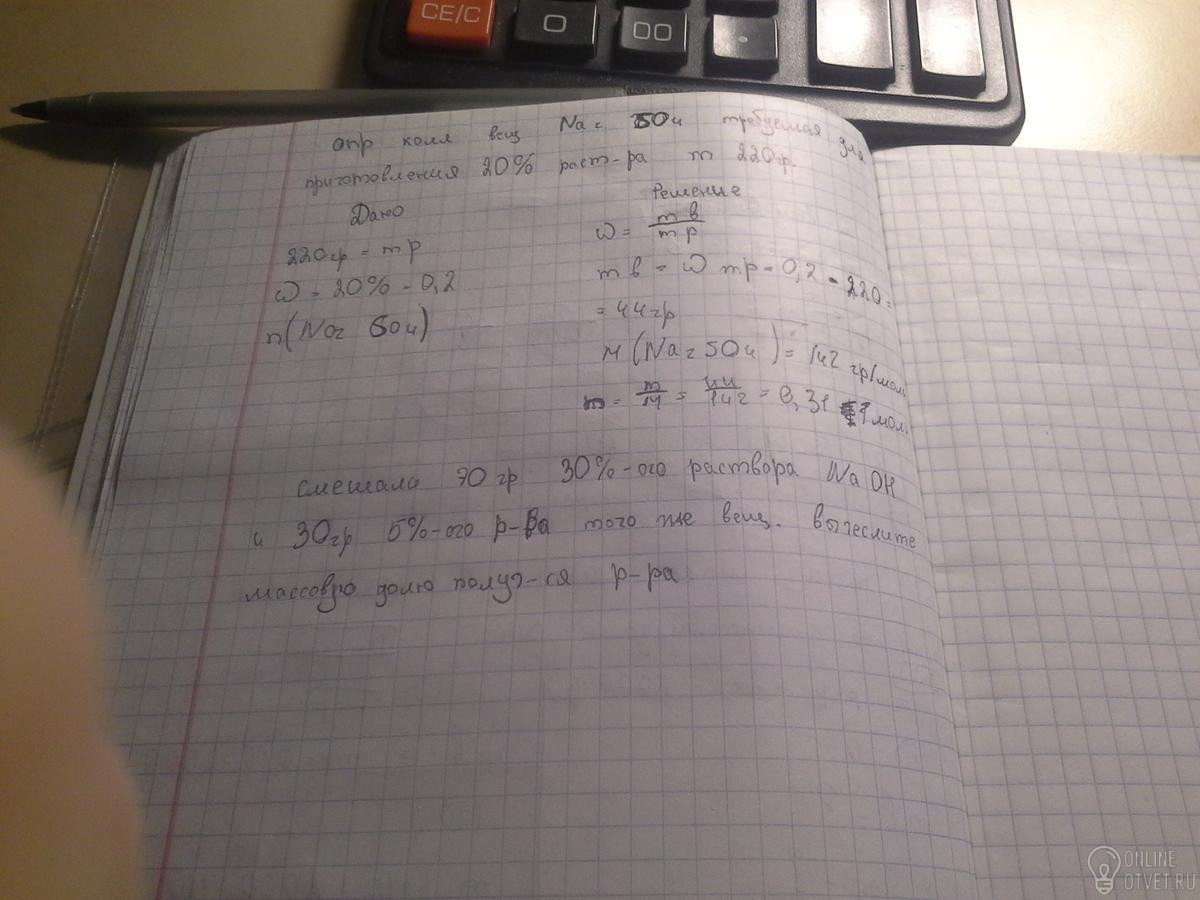 CE/C
0
00
.
опр колл вещ Na2SO4 требуемая для
приготовления 20% раст-ра m 220гр.
Дано
220гр = mр
ω = 20% = 0,2
n(Na2SO4)
Решение
ω = mв/mр
mв = ω mр = 0,2 · 220 =
= 44гр
M(Na2SO4) = 142 гр/моль
n = m/M = 44/142 = 0,31 моль
смешали 70гр 30%-ого раствора NaOH
и 30гр 5%-ого р-ра того же вещ. вычеслите
массовую долю получ-ся р-ра
ONLINE
OTVET.RU